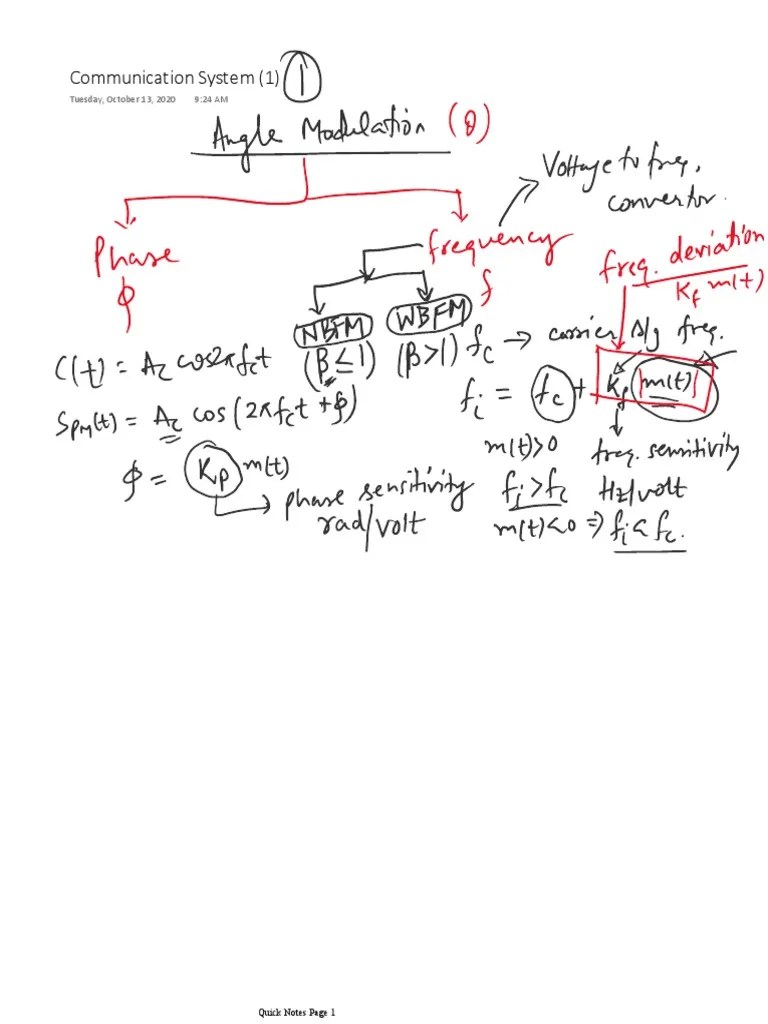 Communication System (1) 1
Tuesday, October 13, 2020 9:24 AM
Angle Modulation (θ)
Voltage to freq.
convertor.
Phase
ϕ
frequency
f
freq. deviation
K_f m(t)
NBFM
(β ≤ 1)
WBFM
(β > 1)
f_c → carrier S/g freq.
C(t) = A_c cos2πf_ct
f_i = f_c + K_f |m(t)|
S_PM(t) = A_c cos(2πf_ct + ϕ)
ϕ = K_p m(t)
phase sensitivity
rad/volt
m(t)>0
f_i > f_c
m(t)<0 ⇒ f_i < f_c.
freq. sensitivity
Hz/volt
Quick Notes Page 1